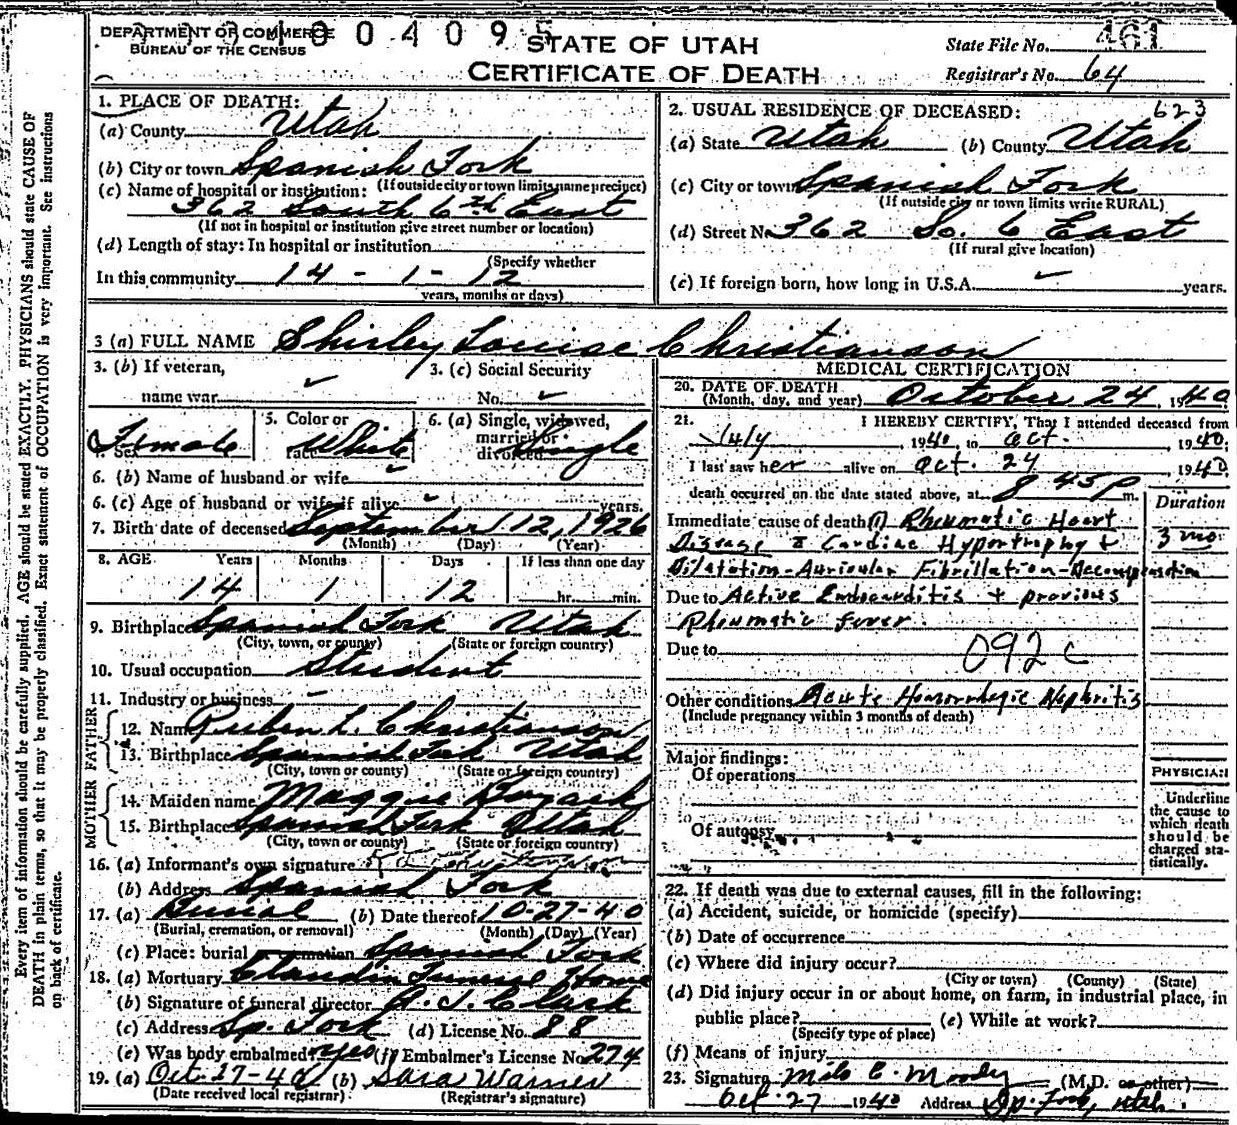 DEPARTMENT OF COMMERCE
BUREAU OF THE CENSUS
004095
STATE OF UTAH
CERTIFICATE OF DEATH
State File No. 461
Registrar's No. 64
Every item of information should be carefully supplied. AGE should be stated EXACTLY. PHYSICIANS should state CAUSE OF
DEATH in plain terms, so that it may be properly classified. Exact statement of OCCUPATION is very important. See instructions
on back of certificate.
1. PLACE OF DEATH:
(a) County Utah
(b) City or town Spanish Fork
(If outside city or town limits name precinct)
(c) Name of hospital or institution:
362 South 6th East
(If not in hospital or institution give street number or location)
(d) Length of stay: In hospital or institution
(Specify whether
In this community 14 - 1 - 12
years, months or days)
623
2. USUAL RESIDENCE OF DECEASED:
(a) State Utah (b) County Utah
(c) City or town Spanish Fork
(If outside city or town limits write RURAL)
(d) Street No. 362 So. 6 East
(If rural give location)
(e) If foreign born, how long in U.S.A. years.
3 (a) FULL NAME Shirley Louise Christianson
3. (b) If veteran,
name war
3. (c) Social Security
No.
Female
Sex
5. Color or
race White
6. (a) Single, widowed,
married or
divorced Single
6. (b) Name of husband or wife
6. (c) Age of husband or wife if alive years.
7. Birth date of deceased September 12, 1926
(Month) (Day) (Year)
8. AGE Years Months Days If less than one day
14 1 12 hr. min.
9. Birthplace Spanish Fork Utah
(City, town, or county) (State or foreign country)
10. Usual occupation Student
11. Industry or business
FATHER
12. Name Ruben L. Christianson
13. Birthplace Spanish Fork Utah
(City, town or county) (State or foreign country)
MOTHER
14. Maiden name Maggie
15. Birthplace Spanish Fork Utah
(City, town or county) (State or foreign country)
16. (a) Informant's own signature
(b) Address Spanish Fork
17. (a) Burial (b) Date thereof 10-27-40
(Burial, cremation, or removal) (Month) (Day) (Year)
(c) Place: burial or cremation Spanish Fork
18. (a) Mortuary Claudin Funeral Home
(b) Signature of funeral director A. J. Clark
(c) Address Sp. Fork (d) License No. 88
(e) Was body embalmed? Yes (f) Embalmer's License No. 274
19. (a) Oct. 27-40 (b) Sara Warner
(Date received local registrar) (Registrar's signature)
MEDICAL CERTIFICATION
20. DATE OF DEATH
(Month, day, and year) October 24, 1940
21. I HEREBY CERTIFY, That I attended deceased from
July, 1940, to Oct. 1940:
I last saw her alive on Oct. 24 1940
death occurred on the date stated above, at 8 45 P m.
Duration
Immediate cause of death (1) Rheumatic Heart
Disease & Cardiac Hypertrophy + 3 mo.
Dilatation - Auricular Fibrillation - Decompensation
Due to Active Endocarditis + previous
Rheumatic fever.
Due to
092c
Other conditions Acute Hemorrhagic Nephritis
(Include pregnancy within 3 months of death)
Major findings:
Of operations
Of autopsy
PHYSICIAN
Underline
the cause to
which death
should be
charged sta-
tistically.
22. If death was due to external causes, fill in the following:
(a) Accident, suicide, or homicide (specify)
(b) Date of occurrence
(c) Where did injury occur?
(City or town) (County) (State)
(d) Did injury occur in or about home, on farm, in industrial place, in
public place? (e) While at work?
(Specify type of place)
(f) Means of injury
23. Signature Milo C. Moody (M.D. or other)
Oct. 27 1940 Address Sp. Fork, Utah.